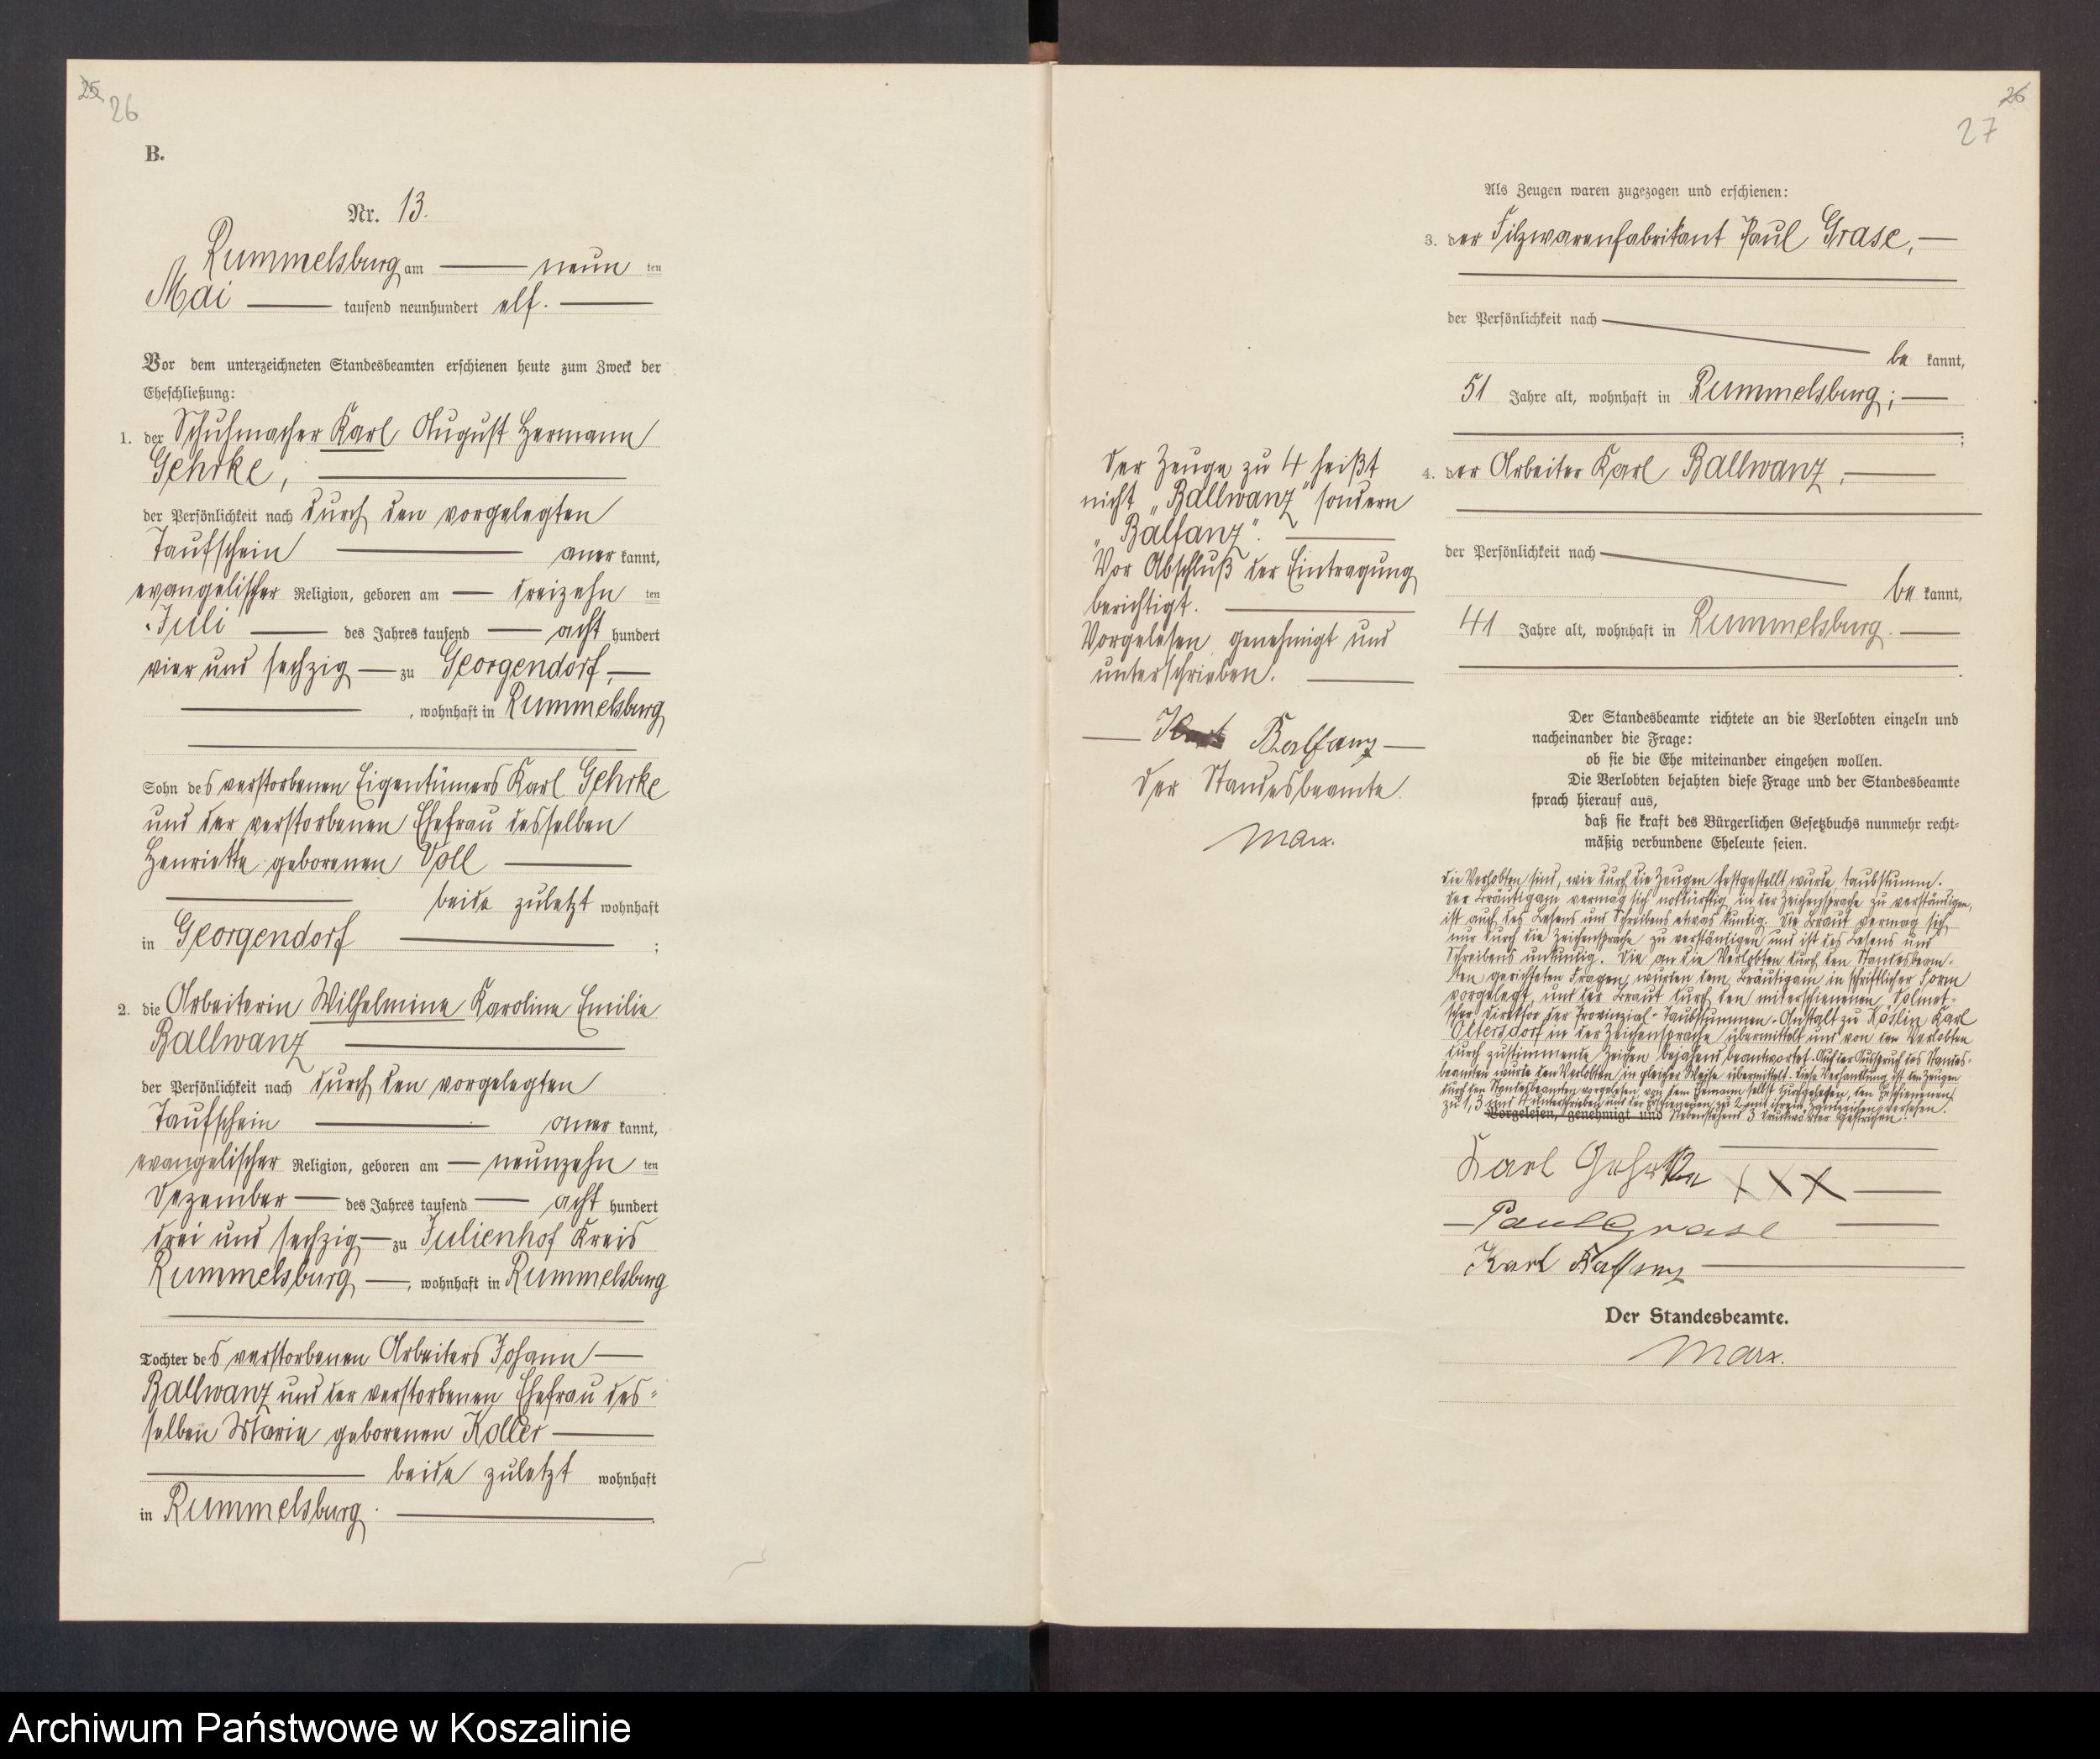 25
26
B.
Nr. 13.
Rummelsburg am neun ten
Mai tausend neunhundert elf.
Vor dem unterzeichneten Standesbeamten erschienen heute zum Zweck der
Eheschließung:
1. der Schuhmacher Karl August Hermann
Gehrke,
der Persönlichkeit nach durch den vorgelegten
Taufschein aner kannt,
evangelischer Religion, geboren am dreizehn ten
Juli des Jahres tausend acht hundert
vier und sechzig zu Georgendorf,
, wohnhaft in Rummelsburg
Sohn des verstorbenen Eigentümers Karl Gehrke
und der verstorbenen Ehefrau desselben
Henriette geborenen Voll
beide zuletzt wohnhaft
in Georgendorf ;
2. die Arbeiterin Wilhelmine Karoline Emilie
Ballwanz
der Persönlichkeit nach durch den vorgelegten
Taufschein aner kannt,
evangelischer Religion, geboren am neunzehn ten
Dezember des Jahres tausend acht hundert
drei und sechzig zu Julienhof Kreis
Rummelsburg, wohnhaft in Rummelsburg
Tochter des verstorbenen Arbeiters Johann
Ballwanz und der verstorbenen Ehefrau des=
selben Marie geborenen Koller
beide zuletzt wohnhaft
in Rummelsburg.
26
27
Als Zeugen waren zugezogen und erschienen:
3. der Filzwarenfabrikant Paul Grase,
der Persönlichkeit nach
be kannt,
51 Jahre alt, wohnhaft in Rummelsburg;
;
4. der Arbeiter Karl Ballwanz,
der Persönlichkeit nach
be kannt,
41 Jahre alt, wohnhaft in Rummelsburg.
Der Zeuge zu 4 heißt
nicht „Ballwanz" sondern
„Balfanz".
Vor Abschluß der Eintragung
berichtigt.
Vorgelesen, genehmigt und
unterschrieben.
Karl Balfanz
Der Standesbeamte.
Marx.
Der Standesbeamte richtete an die Verlobten einzeln und
nacheinander die Frage:
ob sie die Ehe miteinander eingehen wollen.
Die Verlobten bejahten diese Frage und der Standesbeamte
sprach hierauf aus,
daß sie kraft des Bürgerlichen Gesetzbuchs nunmehr recht=
mäßig verbundene Eheleute seien.
Die Verlobten sind, wie durch die Zeugen festgestellt wurde, taubstumm.
Der Bräutigam vermag sich notdürftig in der Zeichensprache zu verständigen,
ist auch des Lesens und Schreibens etwas kundig. Die Braut vermag sich
nur durch die Zeichensprache zu verständigen und ist des Lesens und
Schreibens unkundig. Die an die Verlobten durch den Standesbeam=
ten gerichteten Fragen wurden dem Bräutigam in schriftlicher Form
vorgelegt, und der Braut durch den miterschienenen Dolmet=
scher Direktor der Provinzial-Taubstummen-Anstalt zu Köslin Karl
Ottersdorf in der Zeichensprache übermittelt und von den Verlobten
durch zustimmende Zeichen bejahend beantwortet. Auch der Ausspruch des Standes=
beamten wurde den Verlobten in gleicher Weise übermittelt. Diese Verhandlung ist den Zeugen
durch den Standesbeamten vorgelesen, von dem Ehemann selbst durchgelesen, den Erschienenen
zu 1, 3 und 4 unterschrieben und der Erschienenen zu 2 mit ihrem Handzeichen versehen.
Vorgelesen, genehmigt und Nebenstehend 3 Druckwörter gestrichen.
Karl Gehrke XXX
Paul Grase
Karl Balfanz
Der Standesbeamte.
Marx.
Archiwum Państwowe w Koszalinie